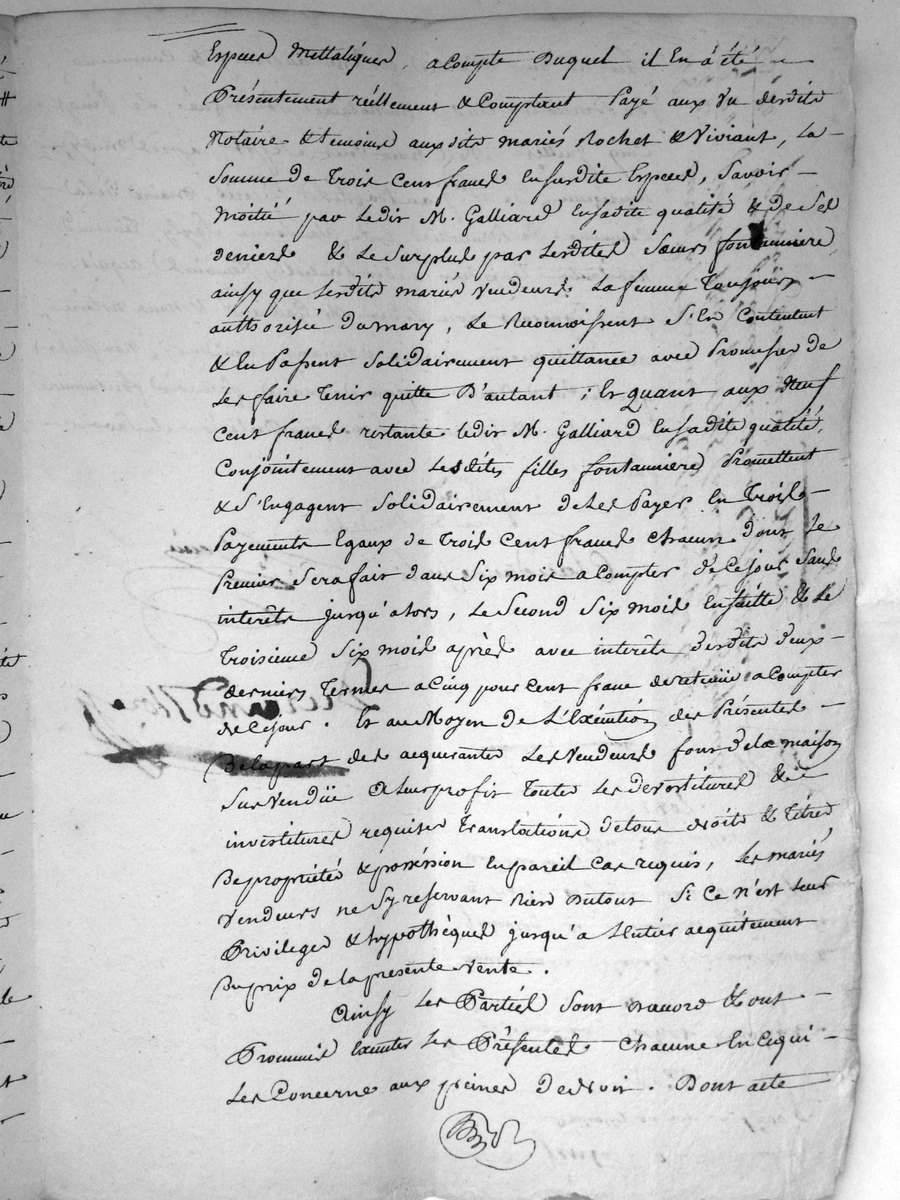 Especes Mettaliques, a Compte Duquel il En à été
Présentement réellement & Comptant Payé aux vu desdits
Notaire & temoins auxdits mariés Rochet & Viviant, La
Somme de Trois Cent francs En susdite Especes, Savoir
moitié par Ledit M. Galliard En sadite qualité & de Ses
deniers & Le Surplus par Lesdites Sœurs fontanniere
ainsy que Lesdits mariés vendeurs La femme Toujours
authorisée du mary, Le Reconnoissent S'En Contentent
& En Passent Solidairement quittance avec Promesses de
Les faire Tenir quitte D'autant ; Et Quant aux Neuf
Cent francs restants ledit M. Galliard En sadite qualité,
Conjointement avec Lesdites filles fontanniere Promettent
& S'Engagent Solidairement de Les Payer En Trois
Payements Egaux de Trois Cent francs Chacun dont Le
Premier Sera fait dans Six mois a Compter de Ce jour Sans
interêts jusqu'alors, Le Second Six mois Ensuitte & Le
Troisieme Six mois après avec interêts desdits deux
derniers Termes a Cinq pour Cent franc de retenüe a Compter
de Ce jour. Et au Moyen de L'Exécution des Présentes
De la part des acquirants Les Vendeurs font de la maison
Sus Vendüe a Leur profit Toutes Les devestitures &
investitures requises Translations de tous droits & Titres
De propriétés & possession En pareil Cas requis, Les mariés
Vendeurs ne Sy reservant Rien Dutout Si Ce n'est Leur
Privileges & hypothèques jusqu'a L'Entier acquittement
Du prix de la presente Vente.
Ainsy Les Parties Sont d'accord & ont
Prommis Executer Les Présentes Chacune En Ce qui
Les Concerne aux peines de droit. Dont acte